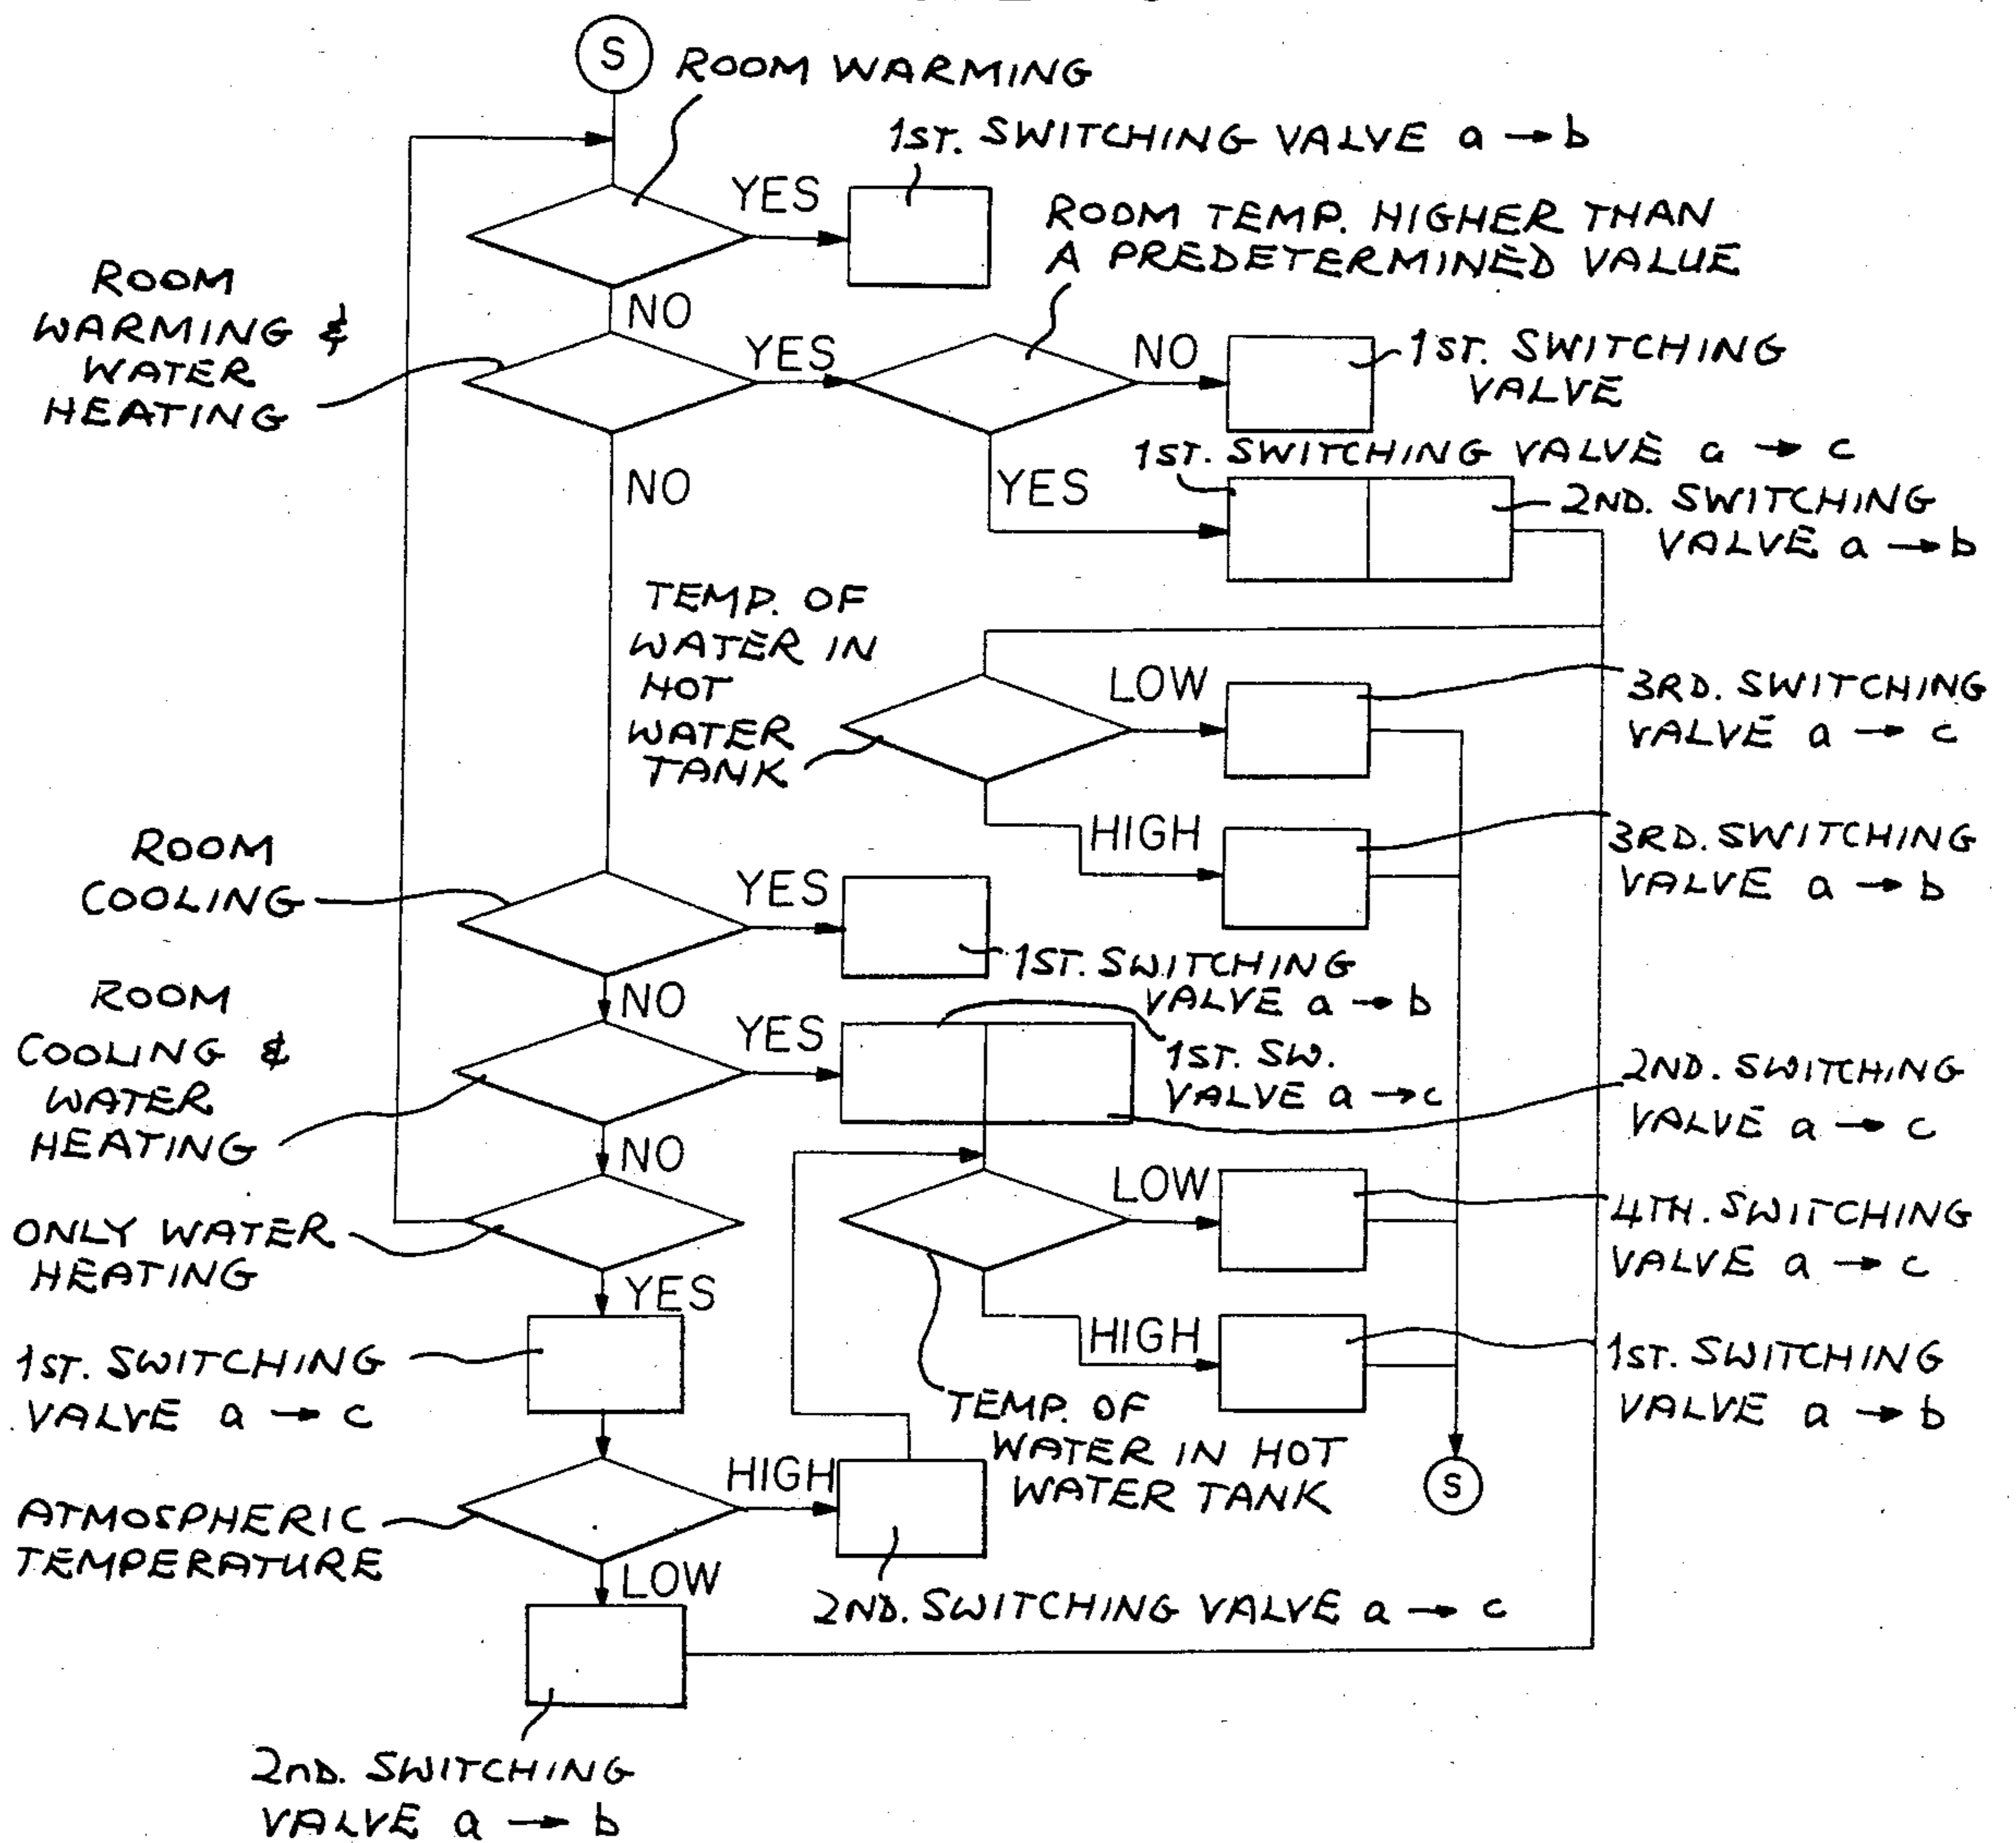 S
ROOM WARMING
1ST. SWITCHING VALVE a → b
YES
ROOM TEMP. HIGHER THAN
A PREDETERMINED VALUE
ROOM
WARMING &
WATER
HEATING
NO
YES
NO
1ST. SWITCHING
VALVE
1ST. SWITCHING VALVE a → c
NO
YES
2ND. SWITCHING
VALVE a → b
TEMP. OF
WATER IN
HOT
WATER
TANK
LOW
3RD. SWITCHING
VALVE a → c
HIGH
3RD. SWITCHING
VALVE a → b
ROOM
COOLING
YES
1ST. SWITCHING
VALVE a → b
NO
ROOM
COOLING &
WATER
HEATING
YES
1ST. SW.
VALVE a → c
2ND. SWITCHING
VALVE a → c
NO
LOW
4TH. SWITCHING
VALVE a → c
ONLY WATER
HEATING
YES
HIGH
1ST. SWITCHING
VALVE a → b
1ST. SWITCHING
VALVE a → c
TEMP. OF
WATER IN HOT
WATER TANK
S
HIGH
ATMOSPHERIC
TEMPERATURE
LOW
2ND. SWITCHING VALVE a → c
2nD. SWITCHING
VALVE a → b